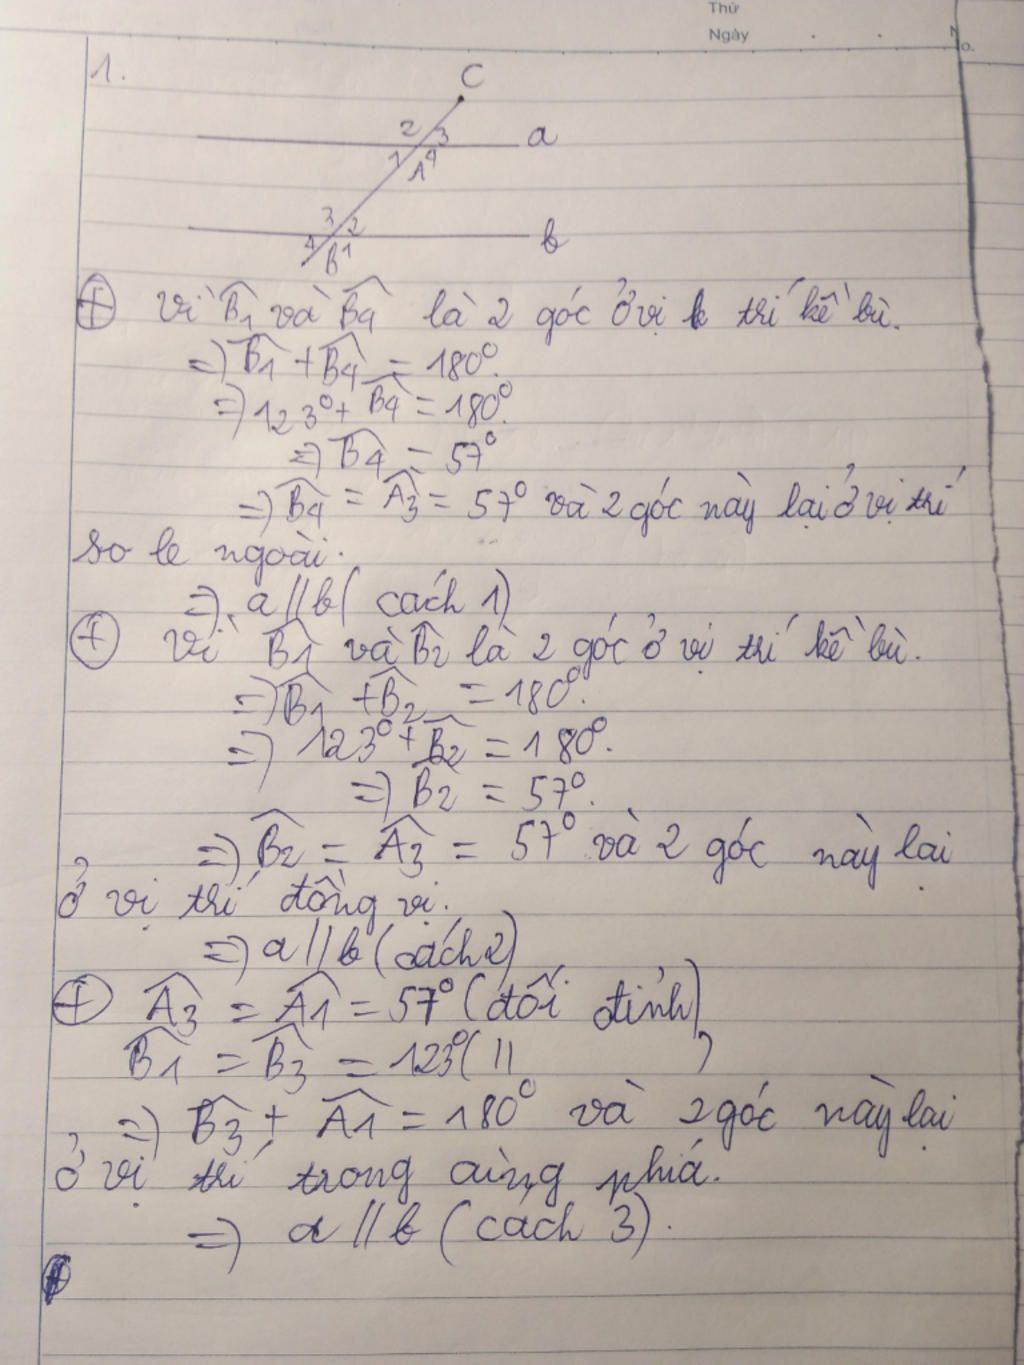 Thứ
Ngày
No.
1.
C
2 3 a
1 A 4
3 2 b
4 B 1
⊕ Vì B̂₁ và B̂₄ là 2 góc ở vị trí kề bù.
=> B̂₁ + B̂₄ = 180°.
=> 123° + B̂₄ = 180°.
=> B̂₄ = 57°
=> B̂₄ = Â₃ = 57° và 2 góc này lại ở vị trí
so le ngoài.
=> a // b ( cách 1)
⊕ Vì B̂₁ và B̂₂ là 2 góc ở vị trí kề bù.
=> B̂₁ + B̂₂ = 180°.
=> 123° + B̂₂ = 180°.
=> B̂₂ = 57°.
=> B̂₂ = Â₃ = 57° và 2 góc này lại
ở vị trí đồng vị.
=> a // b ( cách 2)
⊕ Â₃ = Â₁ = 57° (đối đỉnh)
B̂₁ = B̂₃ = 123° ( || )
=> B̂₃ + Â₁ = 180° và 2 góc này lại
ở vị trí trong cùng phía.
=> a // b ( cách 3).